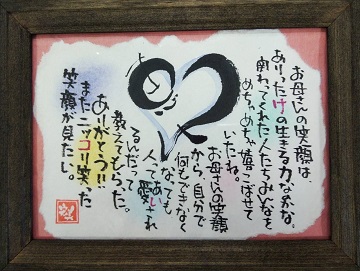 お母さんの笑顔は、
ありったけの生きる力なかな。
関わってくれた人たちみんなを
めちゃめちゃ喜こばせて
いたね。
お母さんの笑顔
から、自分で
何もできなく
なっても
人って愛され
るんだって
教えてもらった。
ありがとう!!
またニッコリ笑った
笑顔が見たい。